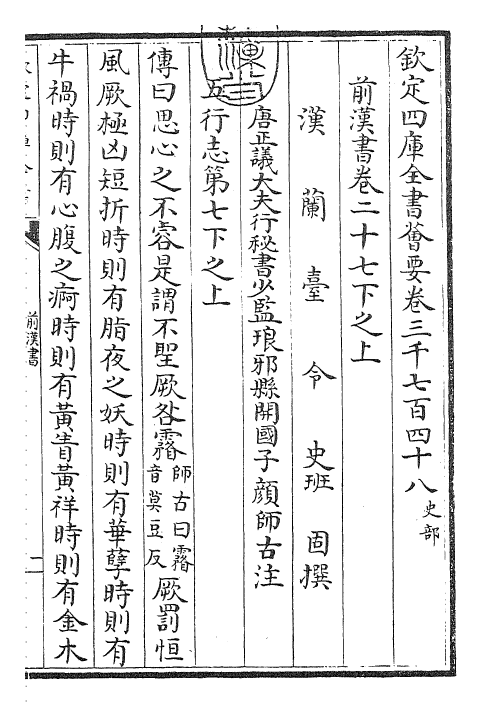 欽定四庫全書薈要卷三千七百四十八史部
前漢書卷二十七下之上
漢蘭臺令史班固撰
唐正議大夫行秘書少監琅邪縣開國子顔師古注
五行志第七下之上
傳曰思心之不容是謂不聖厥咎霿師古曰霿音莫豆反厥罰恒
風厥極凶短折時則有脂夜之妖時則有華孽時則有
牛禍時則有心腹之痾時則有黃眚黃祥時則有金木
前漢書